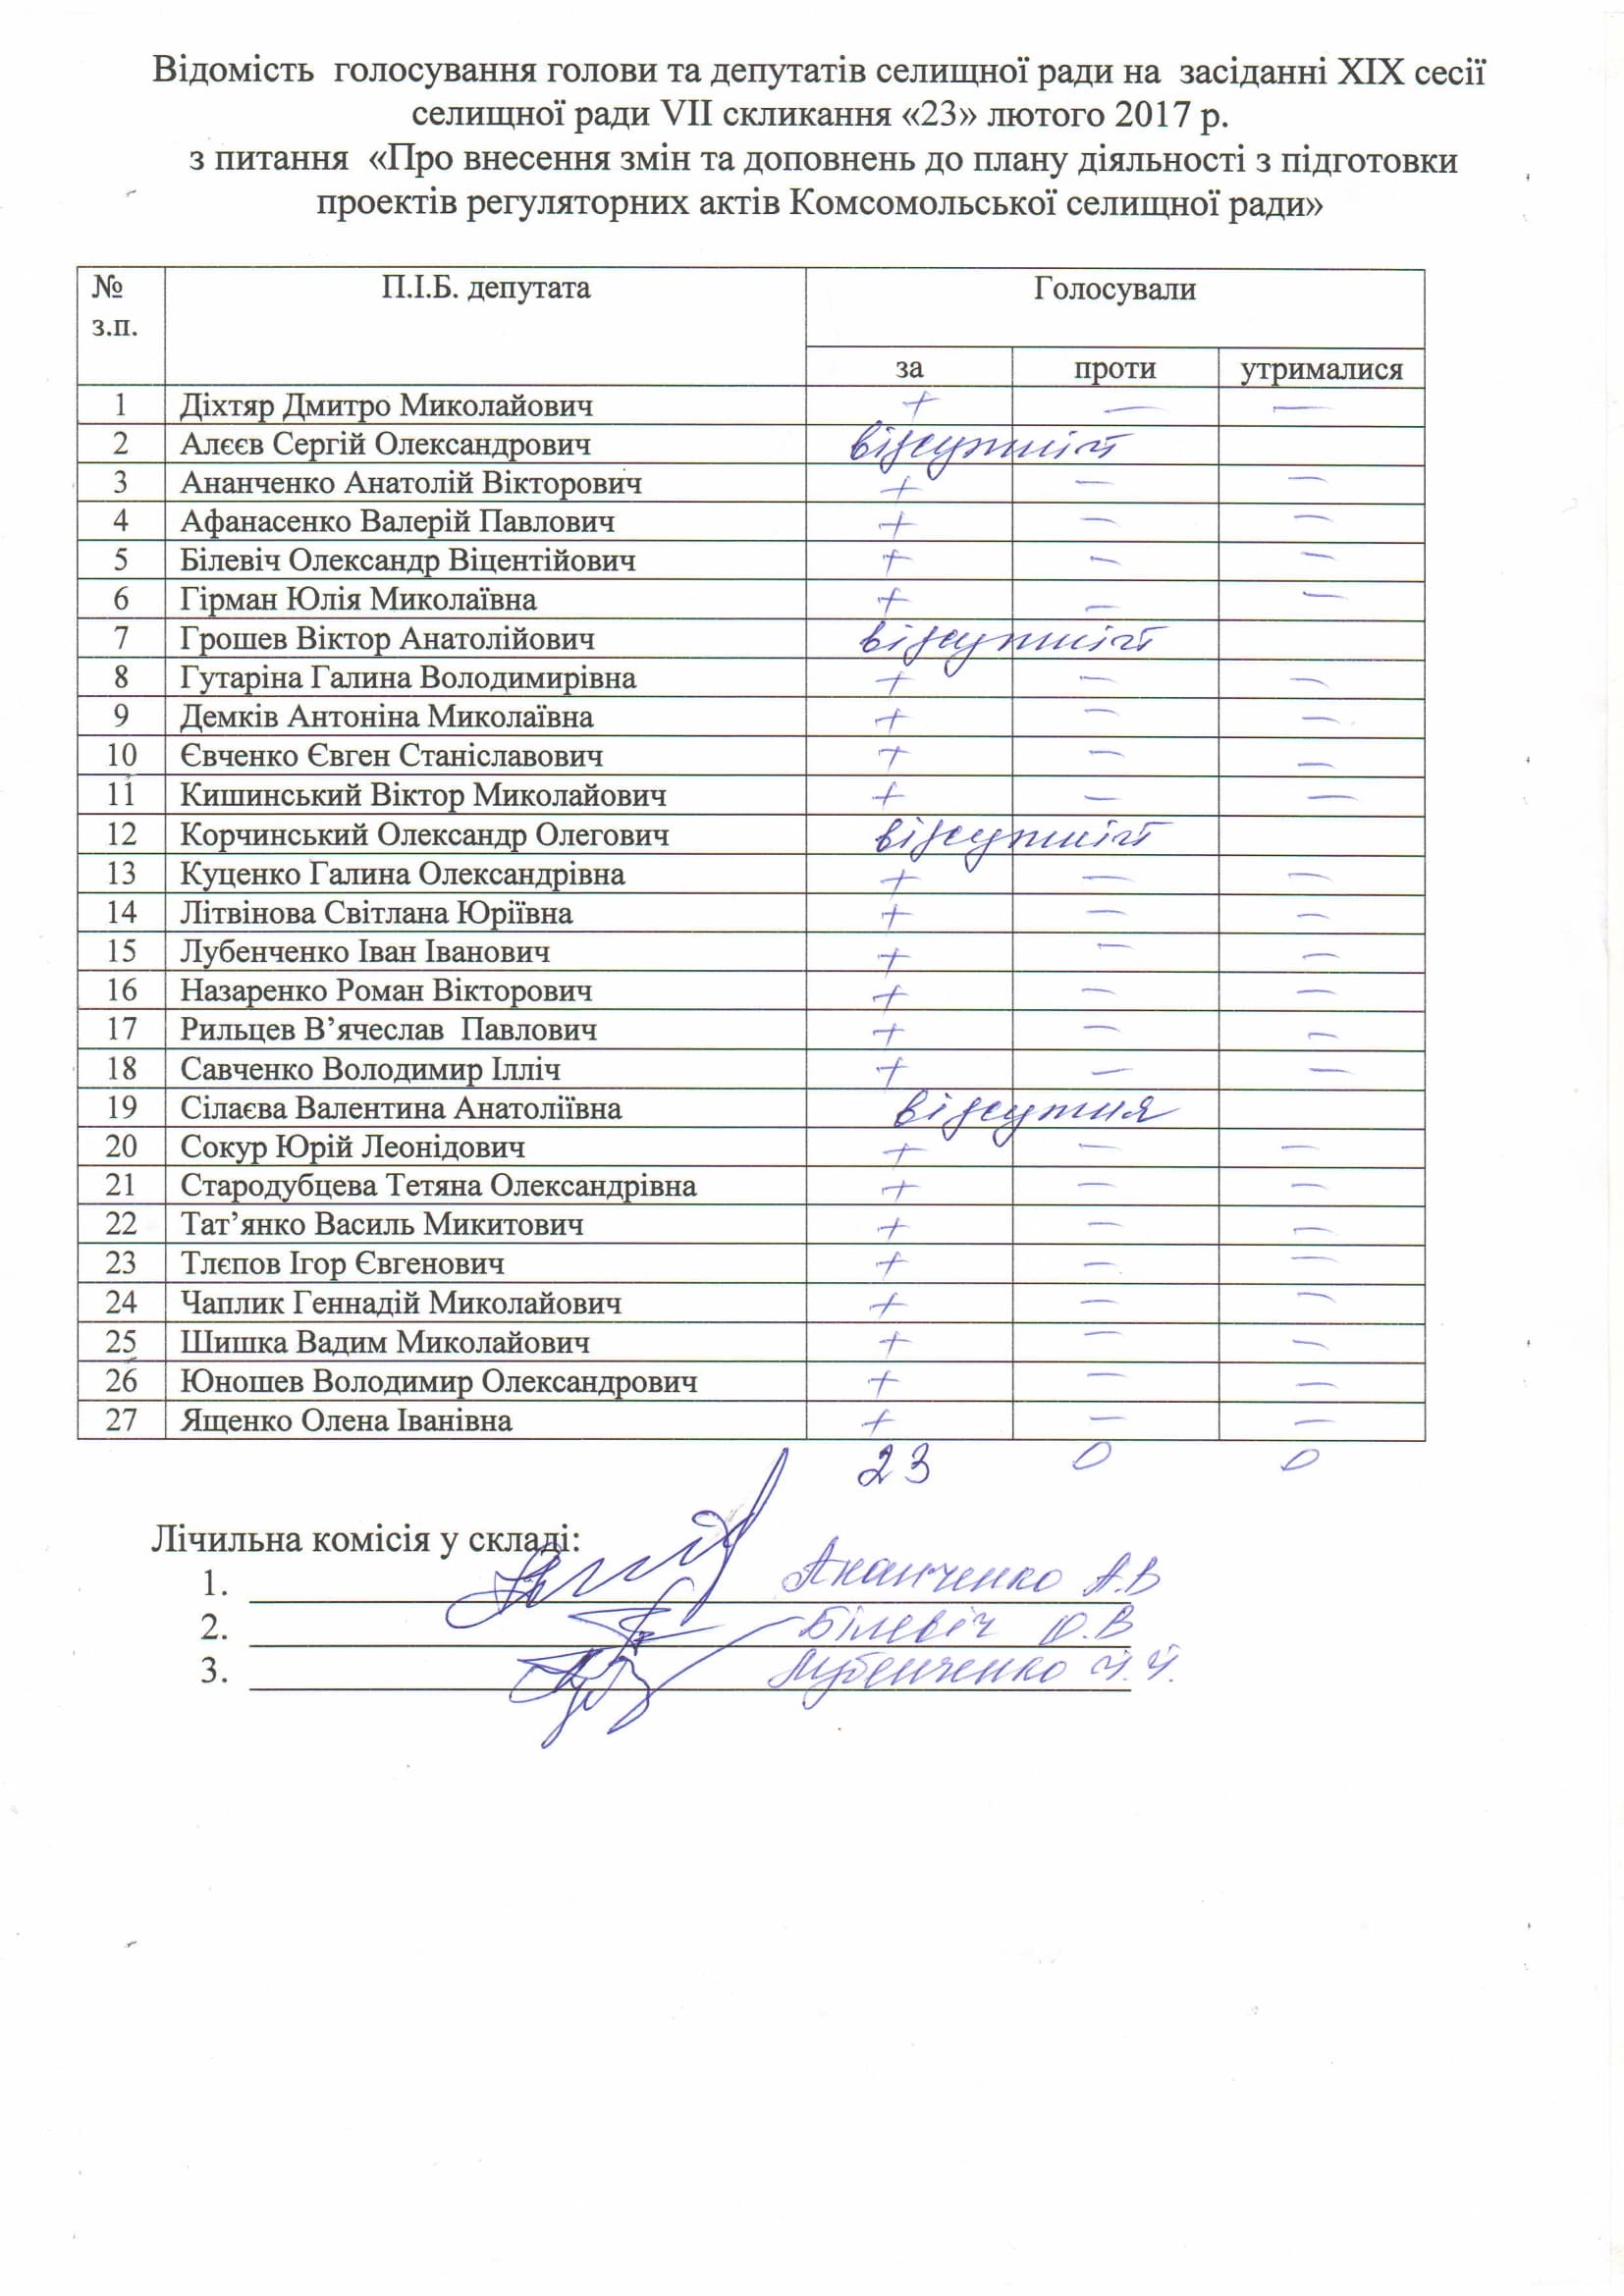 Відомість голосування голови та депутатів селищної ради на засіданні XIX сесії
селищної ради VII скликання «23» лютого 2017 р.
з питання «Про внесення змін та доповнень до плану діяльності з підготовки
проектів регуляторних актів Комсомольської селищної ради»
№ з.п. П.І.Б. депутата Голосували
за проти утрималися
1 Діхтяр Дмитро Миколайович + — —
2 Алєєв Сергій Олександрович відсутній
3 Ананченко Анатолій Вікторович + — —
4 Афанасенко Валерій Павлович + — —
5 Білевіч Олександр Віцентійович + — —
6 Гірман Юлія Миколаївна + — —
7 Грошев Віктор Анатолійович відсутній
8 Гутаріна Галина Володимирівна + — —
9 Демків Антоніна Миколаївна + — —
10 Євченко Євген Станіславович + — —
11 Кишинський Віктор Миколайович + — —
12 Корчинський Олександр Олегович відсутній
13 Куценко Галина Олександрівна + — —
14 Літвінова Світлана Юріївна + — —
15 Лубенченко Іван Іванович + — —
16 Назаренко Роман Вікторович + — —
17 Рильцев В’ячеслав Павлович + — —
18 Савченко Володимир Ілліч + — —
19 Сілаєва Валентина Анатоліївна відсутня
20 Сокур Юрій Леонідович + — —
21 Стародубцева Тетяна Олександрівна + — —
22 Тат’янко Василь Микитович + — —
23 Тлєпов Ігор Євгенович + — —
24 Чаплик Геннадій Миколайович + — —
25 Шишка Вадим Миколайович + — —
26 Юношев Володимир Олександрович + — —
27 Ященко Олена Іванівна + — —
23 0 0
Лічильна комісія у складі:
1. Ананченко А.В
2. Білевіч О.В
3. Лубенченко І.І.